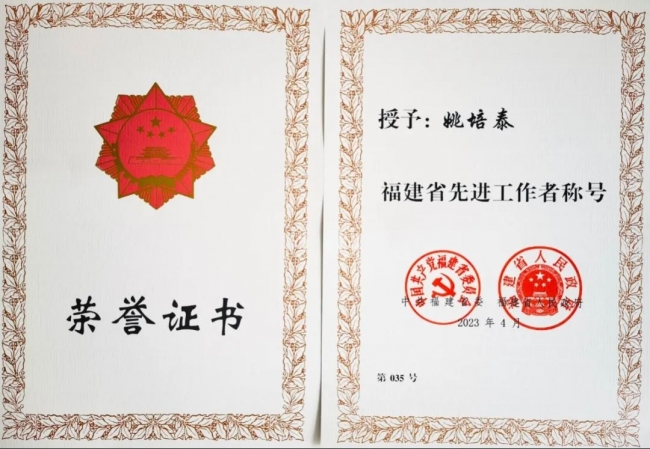 荣誉证书
授予：姚培泰
福建省先进工作者称号
中国共产党福建省委员会
福建省人民政府
中共福建省委 福建省人民政府
2023 年 4 月
第 035 号